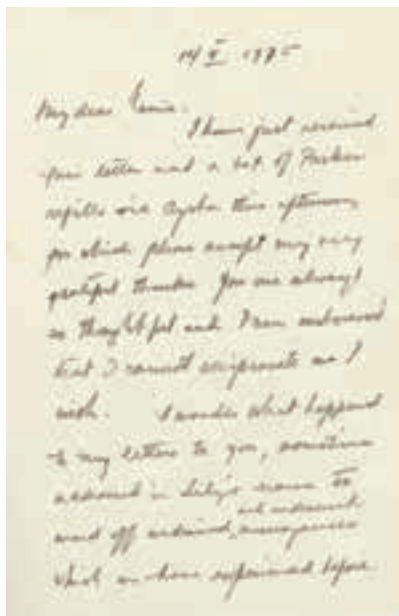 14 V 1975
My dear
I have just received
your letter and a box of Parker
refills via this afternoon
for which please accept my very
grateful thanks. You are always
so thoughtful and I am embarrassed
that I cannot reciprocate as I
wish. I wonder what happened
to my letters to you, sometimes
addressed in name to
ward off
which we have experienced before